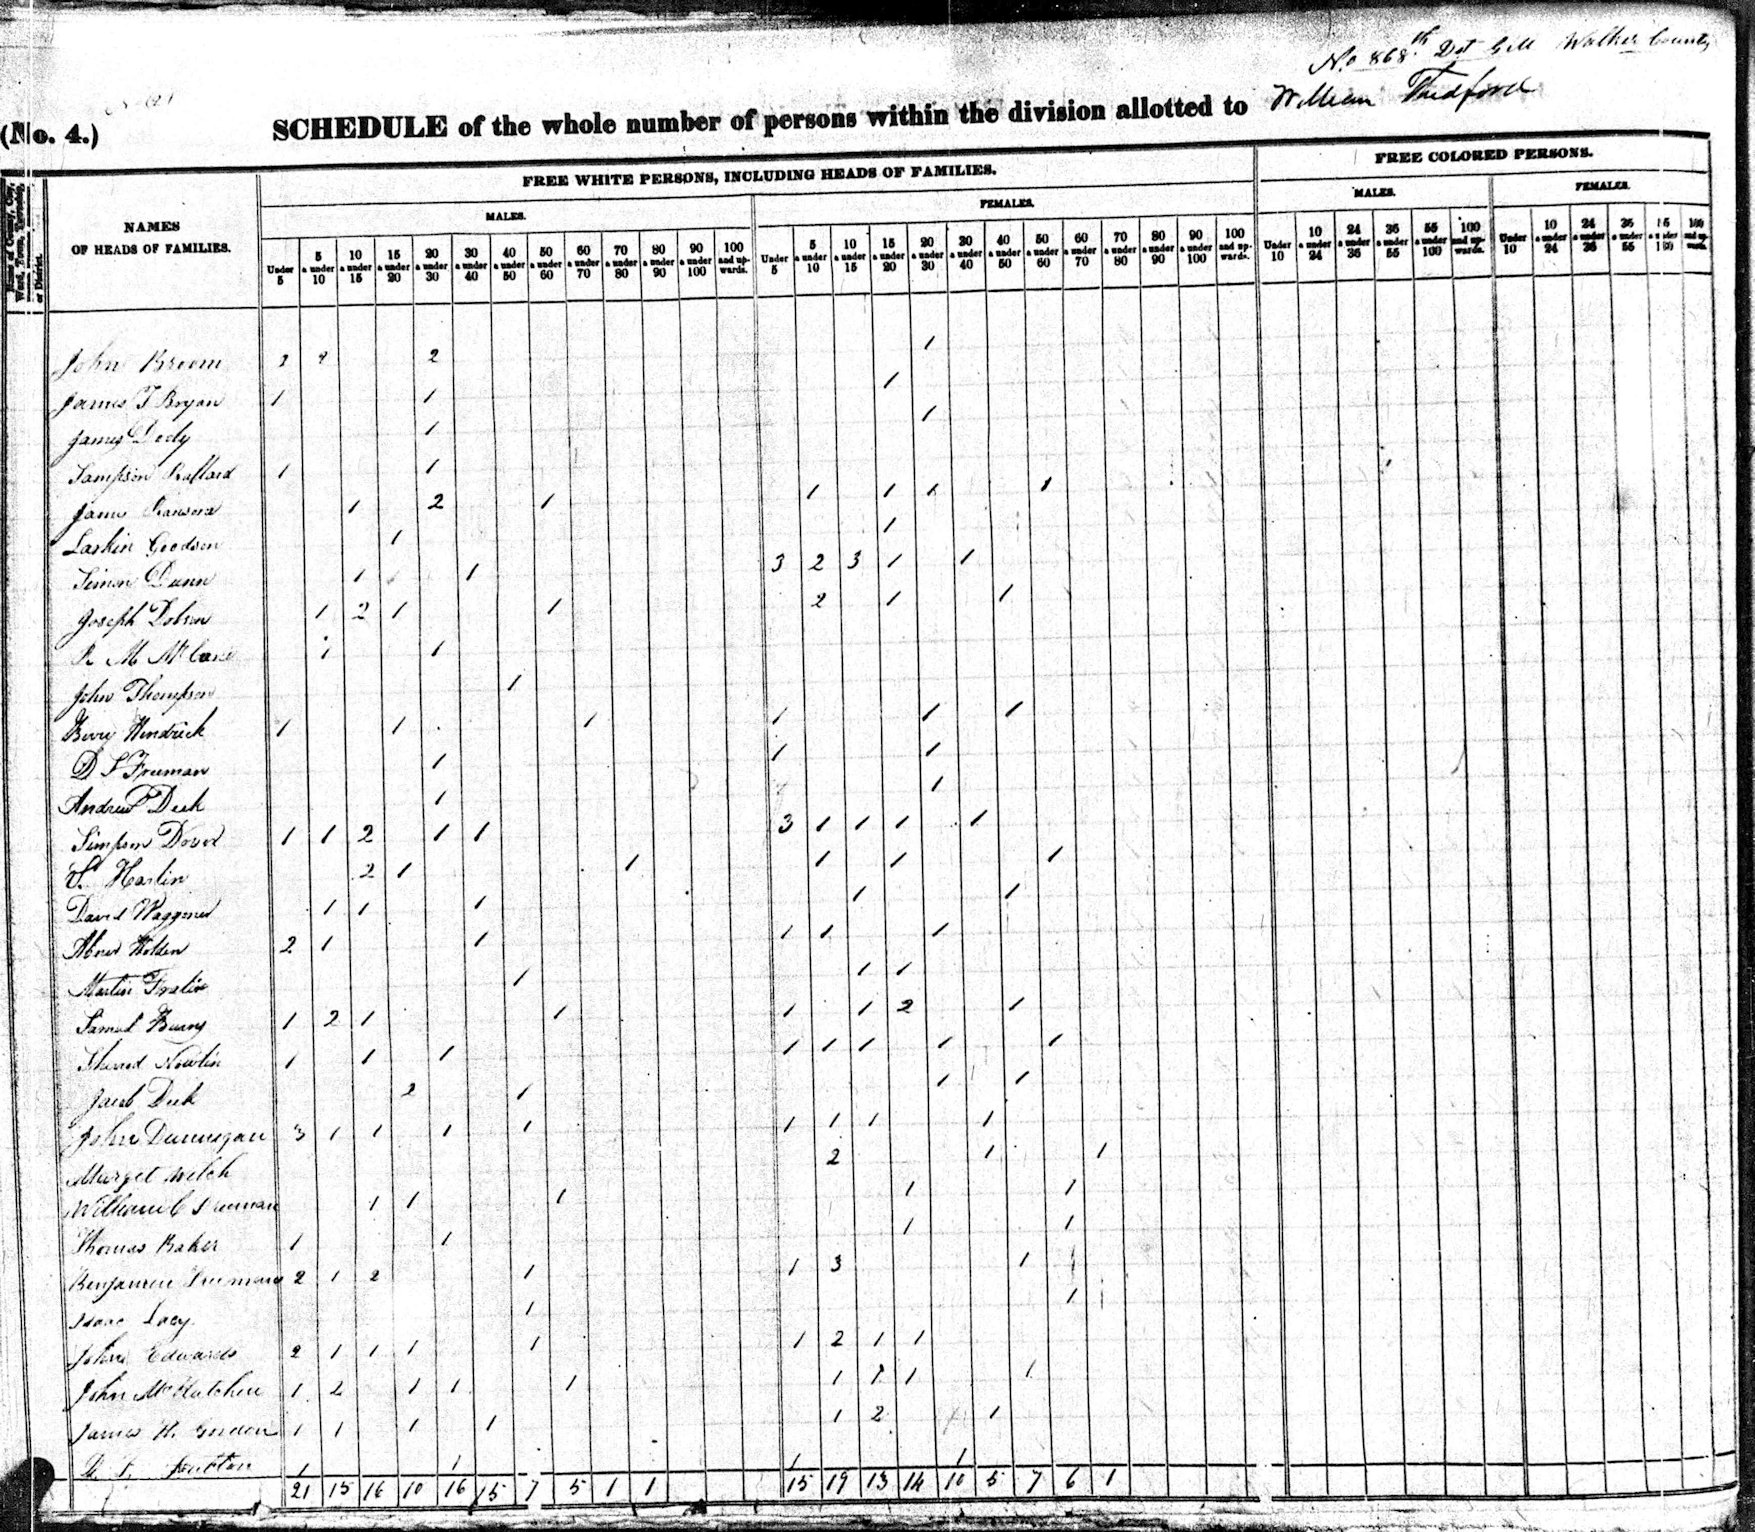 No. 868th Dst GM Walker County
(No. 4.) SCHEDULE of the whole number of persons within the division allotted to William
FREE WHITE PERSONS, INCLUDING HEADS OF FAMILIES. FREE COLORED PERSONS.
MALES. FEMALES. MALES. FEMALES.
Name of County, City, Ward, Town, Township, or District.
NAMES OF HEADS OF FAMILIES.
Under 5 | 5 & under 10 | 10 & under 15 | 15 & under 20 | 20 & under 30 | 30 & under 40 | 40 & under 50 | 50 & under 60 | 60 & under 70 | 70 & under 80 | 80 & under 90 | 90 & under 100 | 100 and upwards. | Under 5 | 5 & under 10 | 10 & under 15 | 15 & under 20 | 20 & under 30 | 30 & under 40 | 40 & under 50 | 50 & under 60 | 60 & under 70 | 70 & under 80 | 80 & under 90 | 90 & under 100 | 100 and upwards. | Under 10 | 10 & under 24 | 24 & under 36 | 36 & under 55 | 55 & under 100 | 100 and upwards. | Under 10 | 10 & under 24 | 24 & under 36 | 36 & under 55 | 55 & under 100 | 100 and upwards.
John Broom 2 1
James T Bryan 1 1 1
James 1 1
Sampson Ballard 1 1
James 1 2 1 1 1 1 1
Larkin Goodson 1 1
Simon Dunn 1 1 3 2 3 1 1
Joseph Dobson 1 2 1 1 2 1 1
R M McCane 1 1
John Thompson 1
Hendrick 1 1 1 1 1 1
D S Freeman 1 1 1
Andrew Deck 1 1
Simpson Dover 1 1 2 1 1 3 1 1 1 1
S. Harlin 2 1 1 1 1 1
David Waggoner 1 1 1 1 1
Abner Holden 2 1 1 1 1 1
Martin 1 1 1
Samuel 1 2 1 1 1 1 2 1
Nowlin 1 1 1 1 1 1 1 1
Jacob Deck 2 1 1 1
John Dunnegan 3 1 1 1 1 1 1 1 1
Marget Welch 2 1 1
William C Freeman 1 1 1 1 1
Thomas Baker 1 1 1 1
Benjamin Freeman 2 1 2 1 1 3 1
Isaac Lacy 1 1
John Edwards 2 1 1 1 1 1 2 1 1
John McCutchen 1 2 1 1 1 1 1 1 1
James H. Gordon 1 1 1 1 1 2 1
1 1 1 1
21 15 16 10 16 15 7 5 1 1 15 19 13 14 10 5 7 6 1